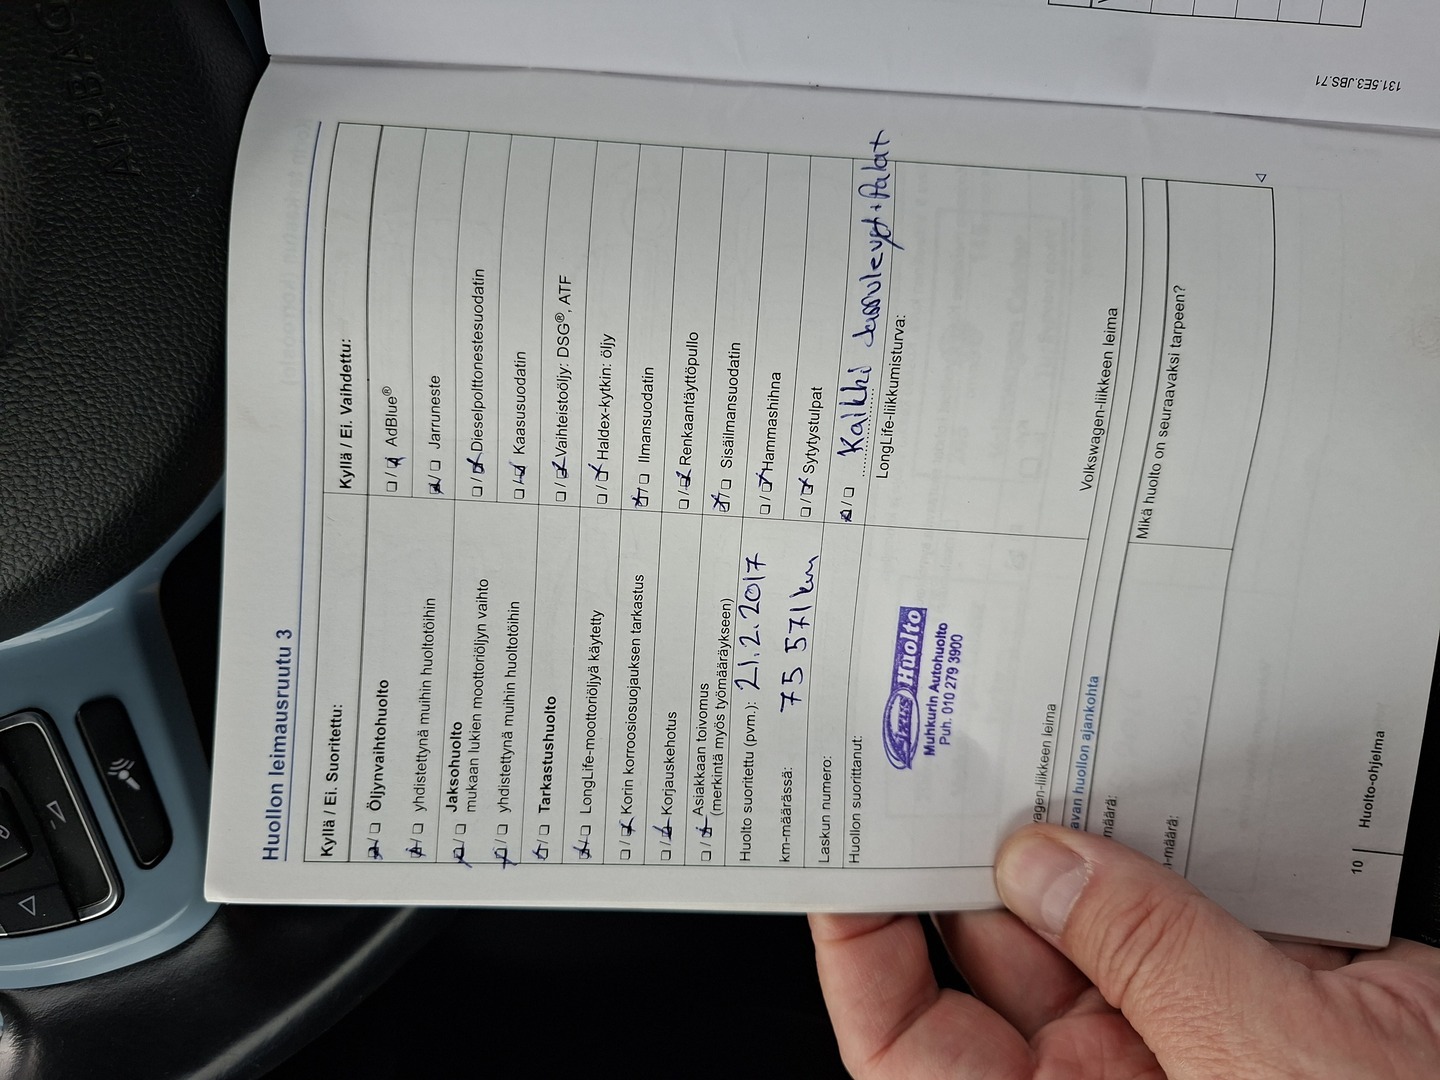 AIRBAG
131.5E3.JBS.71
Huollon leimausruutu 3
Kyllä / Ei. Suoritettu:
☒ / ☐ Öljynvaihtohuolto
☒ / ☐ yhdistettynä muihin huoltotöihin
☒ / ☐ Jaksohuolto
mukaan lukien moottoriöljyn vaihto
☒ / ☐ yhdistettynä muihin huoltotöihin
☒ / ☐ Tarkastushuolto
☒ / ☐ LongLife-moottoriöljyä käytetty
☐ / ☒ Korin korroosiosuojauksen tarkastus
☐ / ☒ Korjauskehotus
☐ / ☒ Asiakkaan toivomus
(merkintä myös työmääräykseen)
Huolto suoritettu (pvm.): 21.2.2017
km-määrässä: 75 571 km
Laskun numero:
Huollon suorittanut:
Fixus Huolto
Muhkurin Autohuolto
Puh. 010 279 3900
wagen-liikkeen leima
Kyllä / Ei. Vaihdettu:
☐ / ☒ AdBlue®
☒ / ☐ Jarruneste
☐ / ☒ Dieselpolttonestesuodatin
☐ / ☒ Kaasusuodatin
☐ / ☒ Vaihteistoöljy: DSG®, ATF
☐ / ☒ Haldex-kytkin: öljy
☒ / ☐ Ilmansuodatin
☐ / ☒ Renkaantäyttöpullo
☒ / ☐ Sisäilmansuodatin
☐ / ☒ Hammashihna
☐ / ☒ Sytytystulpat
☒ / ☐ Kaikki Jarrulevyt + Palat
LongLife-liikkumisturva:
Volkswagen-liikkeen leima
avan huollon ajankohta
määrä:
-määrä:
Mikä huolto on seuraavaksi tarpeen?
10
Huolto-ohjelma